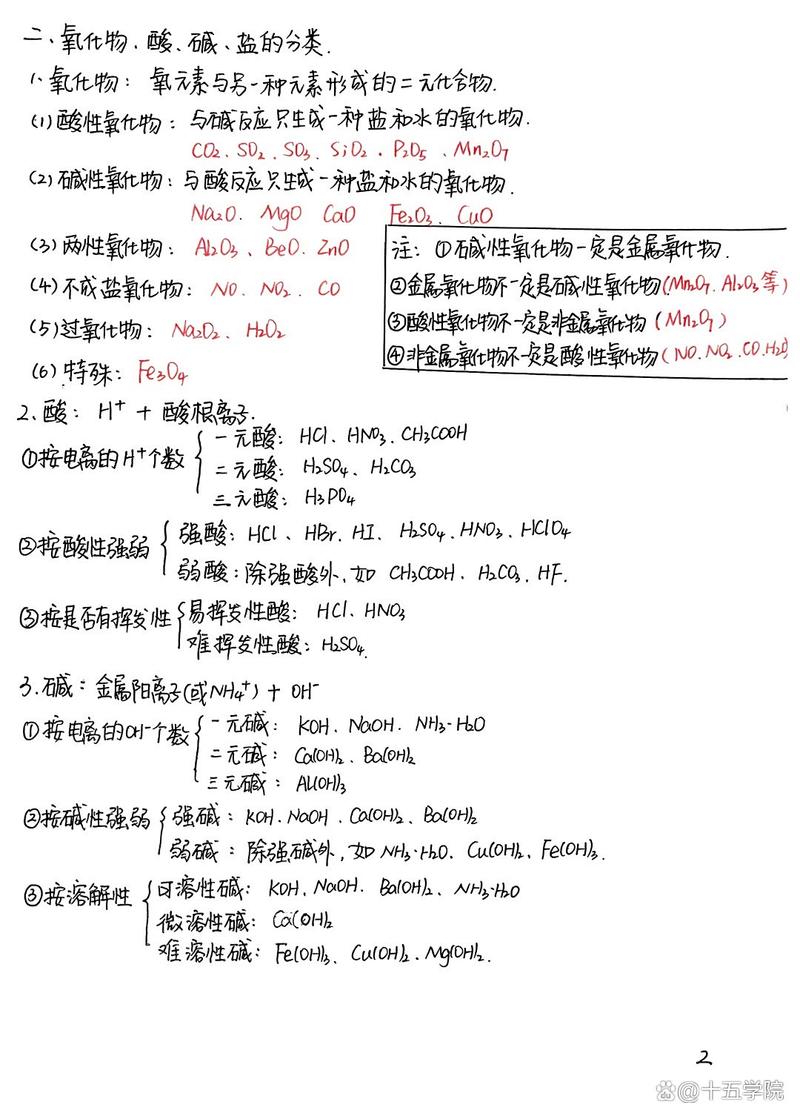 二、氧化物、酸、碱、盐的分类.
1、氧化物：氧元素与另一种元素形成的二元化合物.
(1)酸性氧化物：与碱反应只生成一种盐和水的氧化物.
CO2、SO2、SO3、SiO2、P2O5、Mn2O7
(2)碱性氧化物：与酸反应只生成一种盐和水的氧化物.
Na2O. MgO CaO Fe2O3、CuO
(3)两性氧化物：Al2O3、BeO. ZnO
(4)不成盐氧化物：NO、NO2、CO
(5)过氧化物：Na2O2、H2O2
(6)特殊：Fe3O4
注：①碱性氧化物一定是金属氧化物.
②金属氧化物不一定是碱性氧化物(Mn2O7、Al2O3等)
③酸性氧化物不一定是非金属氧化物(Mn2O7)
④非金属氧化物不一定是酸性氧化物(NO.NO2.CO.H2O)
2、酸：H⁺ + 酸根离子.
①按电离的H⁺个数
一元酸：HCl、HNO3、CH3COOH
二元酸：H2SO4、H2CO3
三元酸：H3PO4
②按酸性强弱
强酸：HCl、HBr、HI、H2SO4、HNO3、HClO4
弱酸：除强酸外，如 CH3COOH、H2CO3、HF.
③按是否有挥发性
易挥发性酸：HCl、HNO3
难挥发性酸：H2SO4.
3.碱：金属阳离子(或NH4⁺) + OH⁻
①按电离的OH⁻个数
一元碱：KOH、NaOH. NH3·H2O
二元碱：Ca(OH)2、Ba(OH)2
三元碱：Al(OH)3
②按碱性强弱
强碱：KOH、NaOH、Ca(OH)2、Ba(OH)2
弱碱：除强碱外，如NH3·H2O、Cu(OH)2、Fe(OH)3.
③按溶解性
可溶性碱：KOH、NaOH. Ba(OH)2、NH3·H2O
微溶性碱：Ca(OH)2
难溶性碱：Fe(OH)3、Cu(OH)2、Mg(OH)2.
2
百家号@十五学院